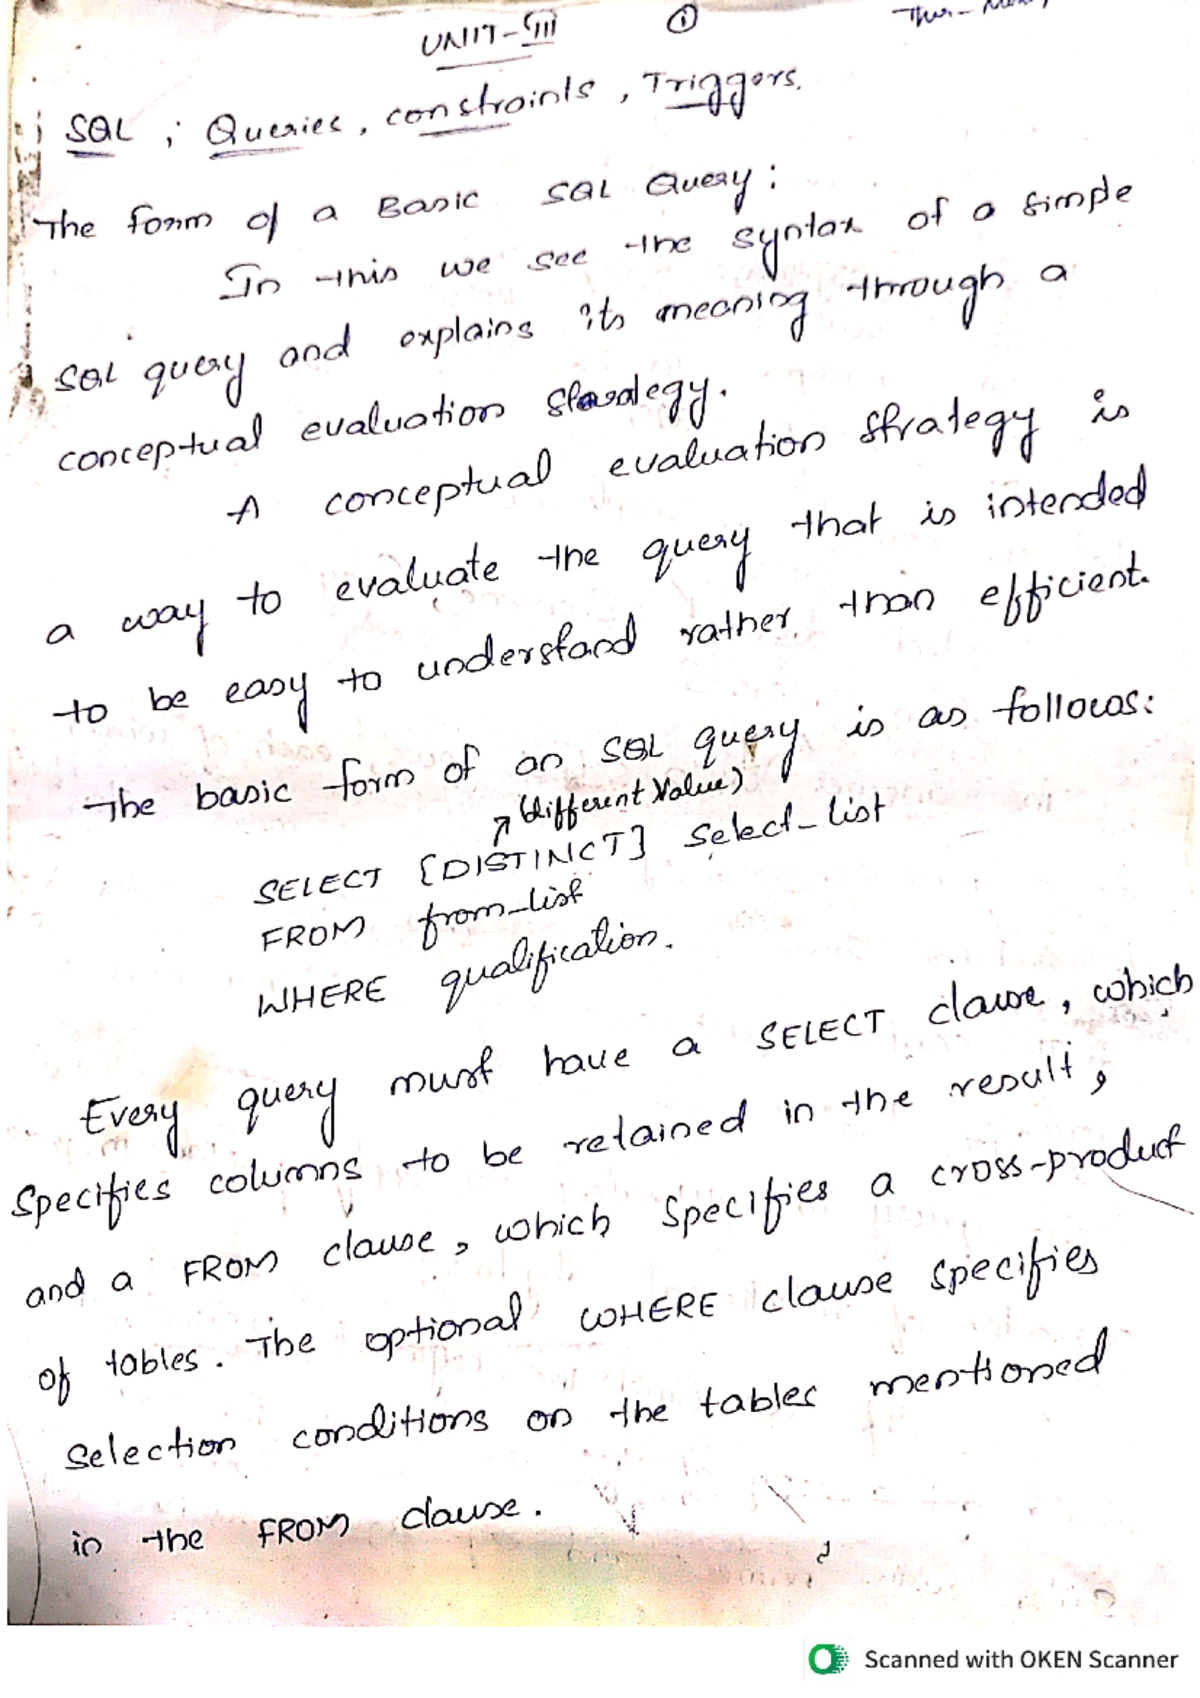 UNIT-III
①
SQL ; Queries, constraints, Triggers.
The form of a Basic SQL Query:
In this we see the syntax of a simple
SQL query and explains its meaning through a
conceptual evaluation strategy.
A conceptual evaluation strategy is
a way to evaluate the query that is intended
to be easy to understand rather than efficient.
The basic form of an SQL query is as follows:
(different Value)
SELECT [DISTINCT] Select_list
FROM from_list
WHERE qualification.
Every query must have a SELECT clause, which
Specifies columns to be retained in the result,
and a FROM clause, which Specifies a cross-product
of tables. The optional WHERE clause specifies
Selection conditions on the tables mentioned
in the FROM clause.
Scanned with OKEN Scanner